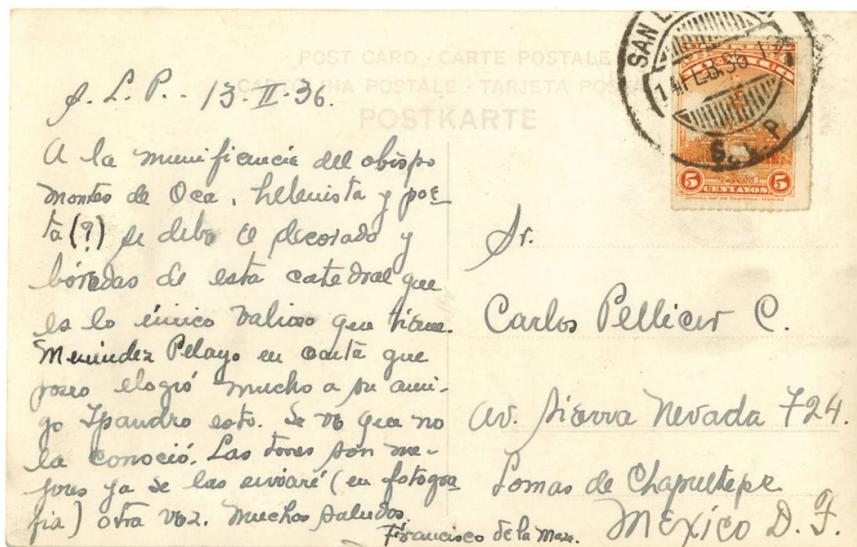 POST CARD · CARTE POSTALE
CARTOLINA POSTALE · TARJETA POSTAL
POSTKARTE
S. L. P. - 13-II-36.
A la munificencia del obispo
Montes de Oca, helenista y poe-
ta (?) se debe el decorado y
bóvedas de esta catedral que
es lo único valioso que tiene.
Menéndez Pelayo en carta que
poseo elogió mucho a su ami-
go Ipandro esto. Se ve que no
la conoció. Las torres son me-
jores ya se las enviaré (en fotogra-
fia) otra vez. Muchos saludos
Francisco de la Maza.
SAN
14 FEB 36
S. L. P.
5 CENTAVOS 5
Sr.
Carlos Pellicer C.
Av. Sierra Nevada 724.
Lomas de Chapultepec
México D. F.